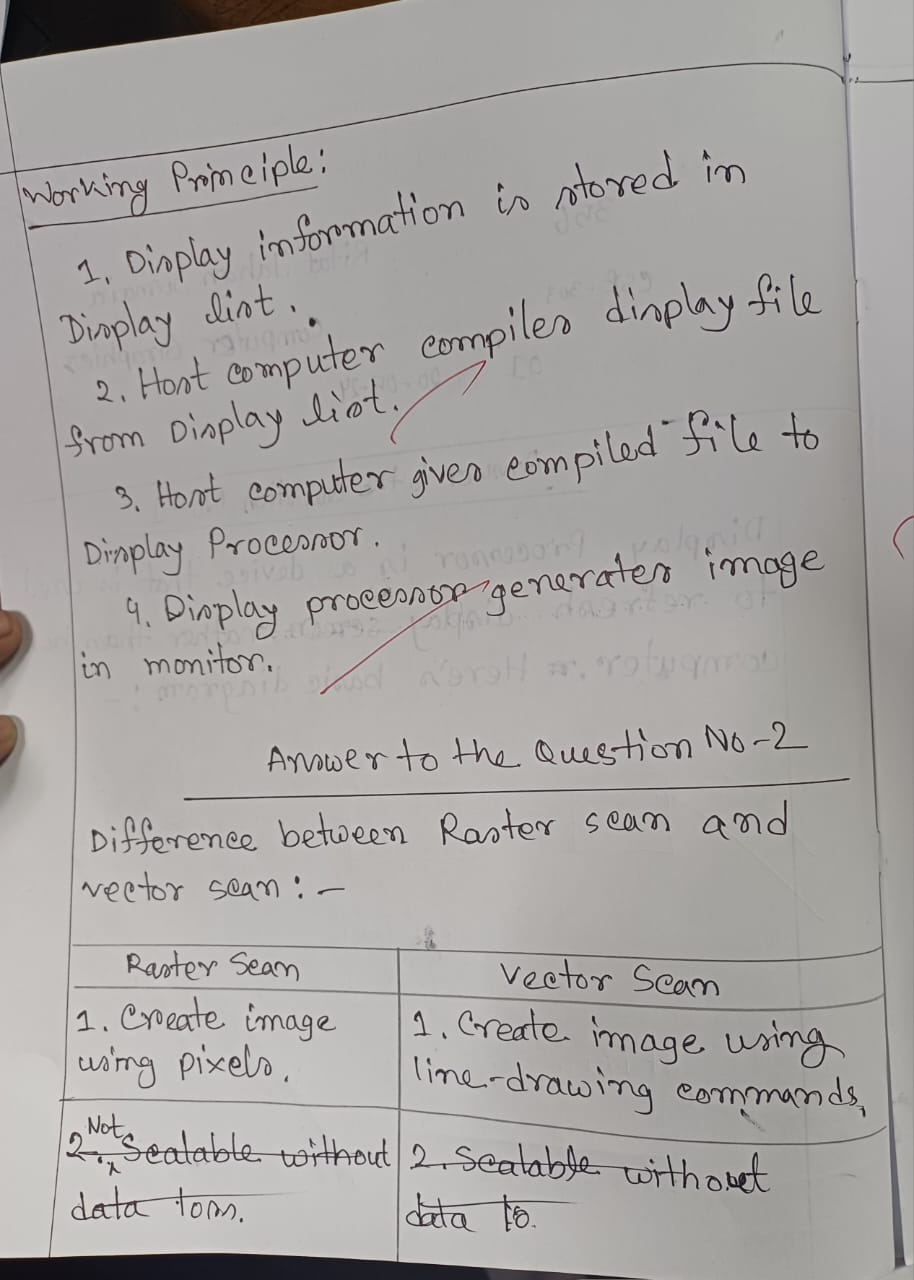 Working Principle:
1. Display information is stored in
Display list.
2. Host computer compiles display file
from Display list.
3. Host computer gives compiled file to
Display Processor.
4. Display processor generates image
in monitor.
Answer to the Question No-2
Difference between Raster scan and
vector scan : -
Raster Scan
Vector Scan
1. Create image
using pixels.
1. Create image using
line-drawing commands,
2. Not Scalable without
data loss.
2. Scalable without
data lo.